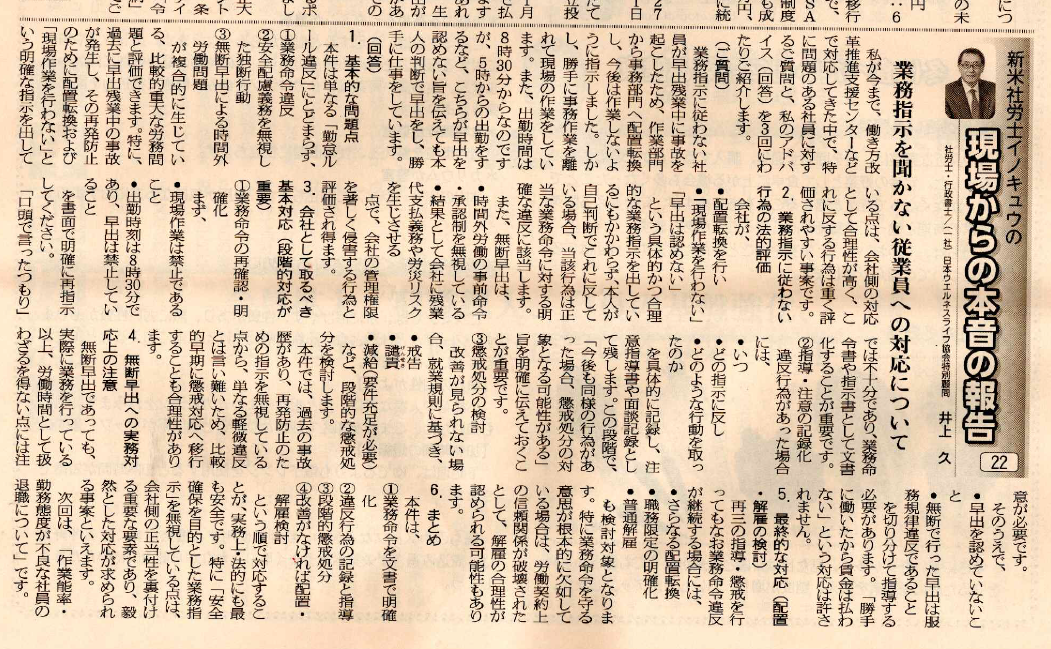 につ
の未
：6
移行
SA
制度
も成
円、
に統
27
1日
て
立投
1月
で払
ます
あれ
出が
があ
生
での
スポ
なし
大失
各条
ティ
新米社労士イノキュウの
現場からの本音の報告
22
社労士・行政書士/（一社）日本ウエルネスライフ協会特別顧問　井上　久
業務指示を聞かない従業員への対応について
私が今まで、働き方改
革推進支援センターなど
で対応してきた中で、特
に問題のある社員に対す
るご質問と、私のアドバ
イス（回答）を3回にわ
たりご紹介します。
（ご質問）
業務指示に従わない社
員が早出残業中に事故を
起こしたため、作業部門
から事務部門へ配置転換
し、今後は作業しないよ
うに指示しました。しか
し、勝手に事務作業を離
れて現場の作業をしてい
ます。また、出勤時間は
8時30分からなのです
が、5時からの出勤をす
るなど、こちらが早出を
認めない旨を伝えても本
人の判断で早出をし、勝
手に仕事をしています。
（回答）
1．基本的な問題点
本件は単なる「勤怠ル
ール違反」にとどまらず、
①業務命令違反
②安全配慮義務を無視し
た独断行動
③無断早出による時間外
労働問題
が複合的に生じてい
る、比較的重大な労務問
題と評価できます。特に、
過去に早出残業中の事故
が発生し、その再発防止
のために配置転換および
「現場作業を行わない」と
いう明確な指示を出して
いる点は、会社側の対応
として合理性が高く、こ
れに反する行為は重く評
価されやすい事案です。
2．業務指示に従わない
行為の法的評価
会社が、
•配置転換を行い
•「現場作業を行わない」
「早出は認めない」
という具体的かつ合理
的な業務指示を出してい
るにもかかわらず、本人が
自己判断でこれに反して
いる場合、当該行為は正
当な業務命令に対する明
確な違反に該当します。
また、無断早出は、
•時間外労働の事前命令
・承認制を無視している
•結果として会社に残業
代支払義務や労災リスク
を生じさせる
点で、会社の管理権限
を著しく侵害する行為と
評価され得ます。
3．会社として取るべき
基本対応（段階的対応が
重要）
①業務命令の再確認・明
確化
ます、
•現場作業は禁止である
こと
•出勤時刻は8時30分で
あり、早出は禁止してい
ること
を書面で明確に再指示
してください。
「口頭で言ったつもり」
では不十分であり、業務命
令書や指示書として文書
化することが重要です。
②指導・注意の記録化
違反行為があった場合
には、
•いつ
•どの指示に反し
•どのような行動を取っ
たのか
を具体的に記録し、注
意指導書や面談記録とし
て残します。この段階で、
「今後も同様の行為があ
った場合、懲戒処分の対
象となる可能性がある」
旨を明確に伝えておくこ
とが重要です。
③懲戒処分の検討
改善が見られない場
合、就業規則に基づき、
•戒告
•譴責
•減給（要件充足が必要）
など、段階的な懲戒処
分を検討します。
本件では、過去の事故
歴があり、再発防止のた
めの指示を無視している
点から、単なる軽微違反
とは言い難いため、比較
的早期に懲戒対応へ移行
することも合理性があり
ます。
4．無断早出への実務対
応上の注意
無断早出であっても、
実際に業務を行っている
以上、労働時間として扱
わざるを得ない点には注
意が必要です。
そのうえで、
•早出を認めていないこ
と
•無断で行った早出は服
務規律違反であること
を切り分けて指導する
必要があります。「勝手
に働いたから賃金は払わ
ない」という対応は許さ
れません。
5．最終的な対応（配置
・解雇の検討）
再三の指導・懲戒を行
ってもなお業務命令違反
が継続する場合には、
•さらなる配置転換
•職務限定の明確化
•普通解雇
も検討対象となりま
す。特に業務命令を守る
意思が根本的に欠如して
いる場合は、労働契約上
の信頼関係が破壊された
として、解雇の合理性が
認められる可能性もあり
ます。
6．まとめ
本件は、
①業務命令を文書で明確
化
②違反行為の記録と指導
③段階的懲戒処分
④改善がなければ配置・
解雇検討
という順で対応するこ
とが、実務上・法的にも最
も安全です。特に「安全
確保を目的とした業務指
示」を無視している点は、
会社側の正当性を裏付け
る重要な要素であり、毅
然とした対応が求められ
る事案といえます。
次回は、「作業能率・
勤務態度が不良な社員の
退職について」です。